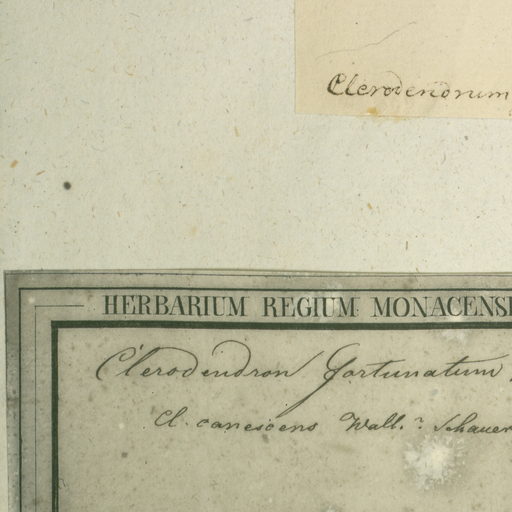 Clerodendrum
HERBARIUM REGIUM MONACENSE
Clerodendron fortunatum
Cl. canescens Wall.? Schauer